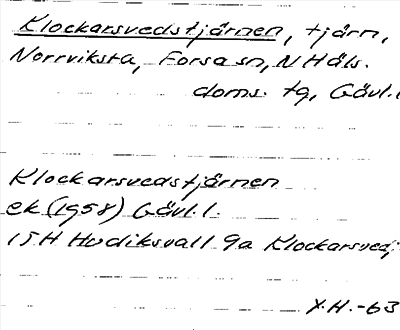 Klockarsvedstjärnen, tjärn,
Norrviksta, Forsa sn, N Häls.
doms. tg, Gävl.l
Klockarsvedstjärnen
ek (1958) Gävl.l.
15H Hudiksvall 9a Klockarsved,
X.H.-63